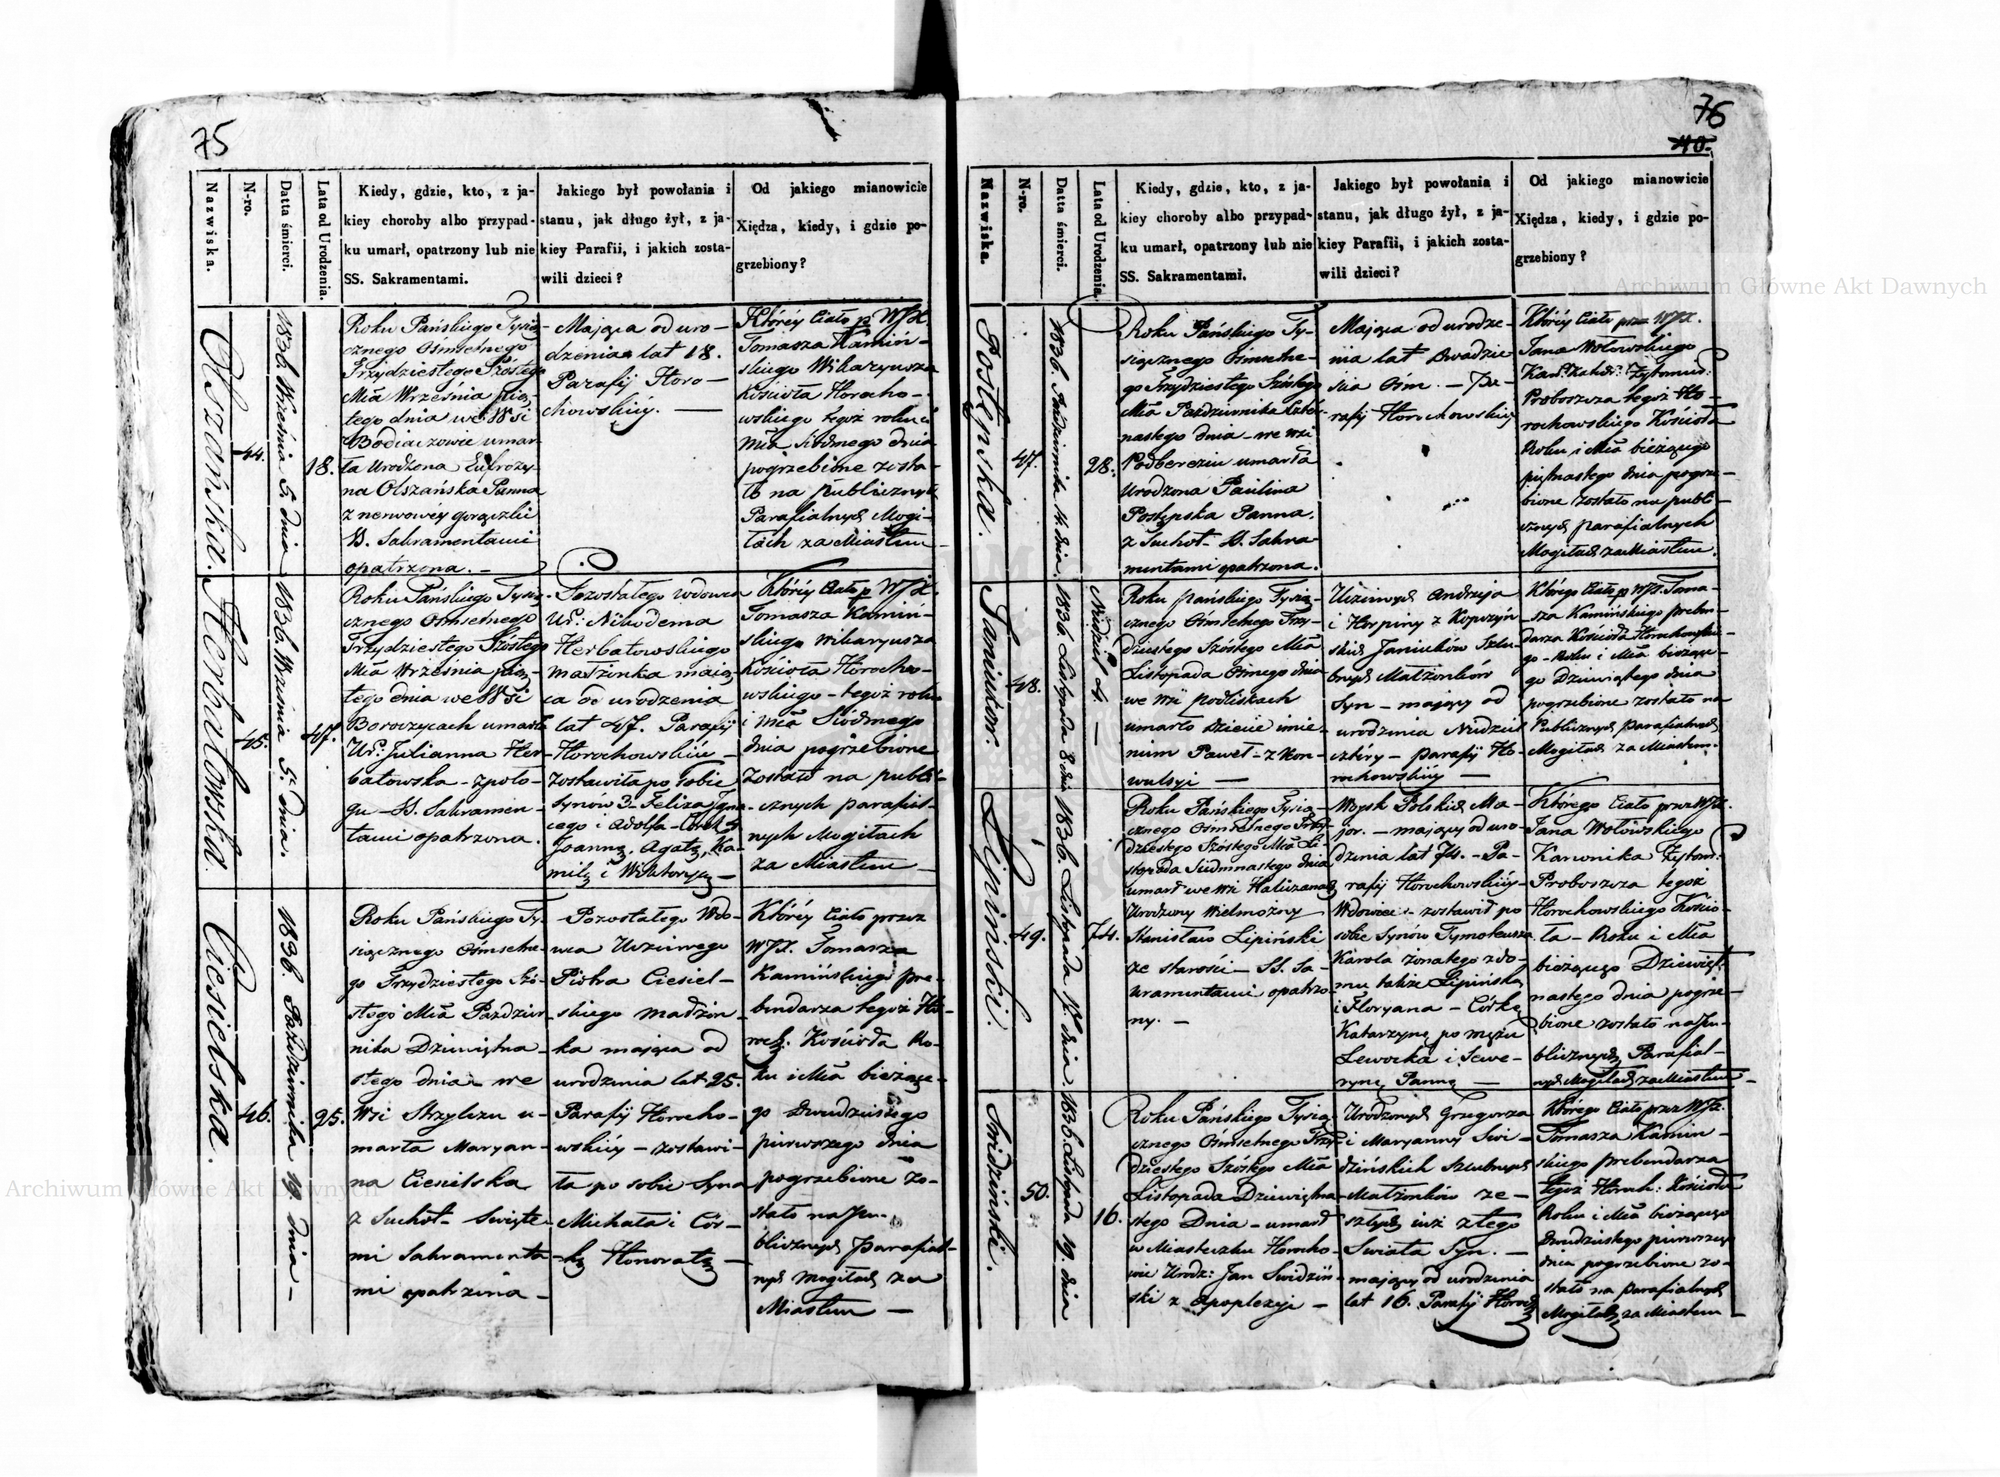 75
Nazwiska.
N-ro.
Datta śmierci.
Lata od Urodzenia.
Kiedy, gdzie, kto, z ja-
kiey choroby albo przypad-
ku umarł, opatrzony lub nie
SS. Sakramentami.
Jakiego był powołania i
stanu, jak długo żył, z ja-
kiey Parafii, i jakich zosta-
wili dzieci?
Od jakiego mianowicie
Xiędza, kiedy, i gdzie po-
grzebiony?
Olszańska.
44.
1836. Września 5. dnia
18.
Roku Pańskiego Tysią-
cznego Ośmsetnego
Trzydziestego Szóstego
Mca Września pią-
tego dnia we Wsi
Bodiaczowie umar-
ła Urodzona Eufrozy-
na Olszańska Panna
z nerwowey gorączki
SS. Sakramentami
opatrzona. -
Mająca od uro-
dzenia lat 18.
Parafij Horo-
chowskiéy. -
Któréy Ciało p. WJX.
Tomasza Kamiń-
skiego Wikaryusza
Kościoła Horocho-
wskiego tegoż roku i
Mca Siódmego dnia
pogrzebione zosta-
ło na publicznych
Parafialnych Mogi-
łach za Miastem
Herbatowska.
45.
1836. Września 5. dnia.
47.
Roku Pańskiego Tysią-
cznego Ośmsetnego
Trzydziestego Szóstego
Mca Września pią-
tego dnia we Wsi
Boroczycach umarła
Ur: Julianna Her-
batowska - z poło-
gu - SS. Sakramen-
tami opatrzona.
Pozostałego wdowca
Ur: Nikodema
Herbatowskiego
małżonka mają-
ca od urodzenia
lat 47. Parafij
Horochowskiéy -
zostawiła po Sobie
Synów 3. Felixa, Igna-
cego i Adolfa - Córek 4
Joannę, Agatę, Ka-
milę i Wiktoryę -
Któréy Ciało p. WJX.
Tomasza Kamiń-
skiego Wikaryusza
Kościoła Horocho-
wskiego - tegoż roku
i Mca Siódmego
dnia pogrzebione
zostało na publi-
cznych parafial-
nych Mogiłach
za Miastem -
Ciesielska.
46.
1836. Października 19. dnia -
25.
Roku Pańskiego Ty-
siącznego Ośmsetne-
go Trzydziestego Szó-
stego Mca Paździer-
nika Dziewiętna-
stego dnia we
Wsi Strzylczu u-
marła Maryan-
na Ciesielska
z Suchot - Święte-
mi Sakramenta-
mi opatrzona -
Pozostałego Wdo-
wca Uczciwego
Piotra Ciesiel-
skiego małżon-
ka mająca od
urodzenia lat 25.
Parafij Horocho-
wskiéy - zostawi-
ła po sobie Syna
Michała i Cór-
kę Honoratę -
Któréy Ciało przez
WJX. Tomasza
Kamińskiego pre-
bendarza tegoż Ho-
roch: Kościoła Ro-
ku i Mca bieżące-
go Dwudziestego
pierwszego dnia
pogrzebione zo-
stało na Pu-
blicznych parafial-
nych Mogiłach za
Miastem -
76
40.
Nazwiska.
N-ro.
Datta śmierci.
Lata od Urodzenia.
Kiedy, gdzie, kto, z ja-
kiey choroby albo przypad-
ku umarł, opatrzony lub nie
SS. Sakramentami.
Jakiego był powołania i
stanu, jak długo żył, z ja-
kiey Parafii, i jakich zosta-
wili dzieci?
Od jakiego mianowicie
Xiędza, kiedy, i gdzie po-
grzebiony?
Postępska.
47.
1836. Października 14. dnia.
28.
Roku Pańskiego Ty-
siącznego Ośmsetne-
go Trzydziestego Szóstego
Mca Października Czter-
nastego dnia - we wsi
Podbereziu umarła
Urodzona Paulina
Postępska Panna.
z Suchot - SS. Sakra-
mentami opatrzona.
Mająca od urodze-
nia lat Dwadzie-
ścia Ośm. - Pa-
rafij Horochowskiéy
Któréy Ciało prze WJX.
Jana Wołowskiego
Kan: Katedr: Żytomir:
Proboszcza tegoż Ho-
rochowskiego Kościoła
Roku i Mca bieżącego
piętnastego dnia pogrze-
bione zostało na publi-
cznych parafialnych
Mogiłach za Miastem.
Janiuków.
48.
1836. Listopada 8. dnia
Niedziel 4. -
Roku pańskiego Tysią-
cznego Ośmsetnego Trzy-
dziestego Szóstego Mca
Listopada Ośmego dnia
we wsi podliskach
umarło Dziecie imie-
niem Paweł - z kon-
wulsyi -
Uczciwych Andrzeja
i Horpiny z Kopczyń-
skich Janiuków Szlu-
bnych Małżonków
Syn - mający od
urodzenia Niedziel
cztéry - parafij Ho-
rochowskiéy -
Którego Ciało p. WJX. Toma-
sza Kamińskiego preben-
darza Kościoła Horochowskie-
go - Roku i Mca bieżące-
go Dziewiątego dnia
pogrzebione zostało na
Publicznych parafialnych
Mogiłach za Miastem.
Lipiński.
49.
1836. Listopada 17. dnia.
74.
Roku Pańskiego Tysią-
cznego Ośmsetnego Trzy-
dziestego Szóstego Mca Li-
stopada Siedmnastego dnia
umarł we wsi Haliczanach
Urodzony Wielmożny
Stanisław Lipiński
ze starości - SS. Sa-
kramentami opatrzo-
ny. -
Woysk Polskich Ma-
jor. - mający od uro-
dzenia lat 74. - Pa-
rafij Horochowskiéy -
Wdowiec - zostawił po
sobie Synów Tymoteusza
Karola żonatego z do-
mu także Lipińską
i Floryana - Córkę
Katarzynę po mężu
Lewocka i Sewe-
rynę Pannę -
Którego Ciało przez WJX.
Jana Wołowskiego
Kanonika Żytom:
Proboszcza tegoż
Horochowskiego Kościo-
ła - Roku i Mca
bieżącego Dziewięt-
nastego dnia pogrze-
bione zostało na Pu-
blicznych Parafial-
nych Mogiłach za Miastem -
Swidziński.
50.
1836. Listopada 19. dnia
16.
Roku Pańskiego Tysią-
cznego Ośmsetnego Trzy-
dziestego Szóstego Mca
Listopada Dziewiętna-
stego Dnia - umarł
w Miasteczku Horocho-
wie Urodz: Jan Swidziń-
ski z Apoplexyi -
Urodzonych Grzegorza
i Maryanny Swi-
dzińskich Szlubnych
Małżonków ze-
szłych już z tego
Świata Syn. -
mający od urodzenia
lat 16. Parafij Horoch:
Którego Ciało przez WJX.
Tomasza Kamiń-
skiego prebendarza
tegoż Horoch: Kościoła
Roku i Mca bieżącego
Dwudziestego pierwszego
dnia pogrzebione zo-
stało na parafialnych
Mogiłach za Miastem
Archiwum Główne Akt Dawnych
Archiwum Główne Akt Dawnych